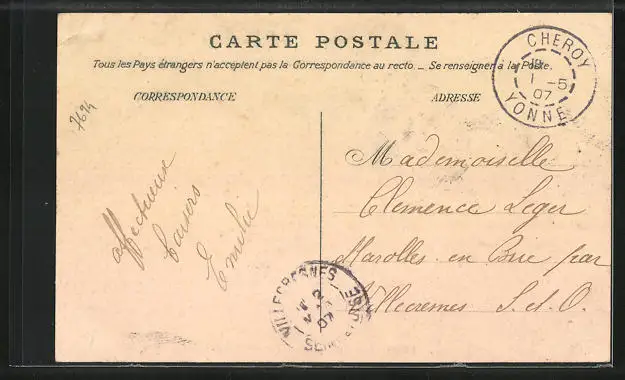 CARTE POSTALE
Tous les Pays étrangers n'acceptent pas la Correspondance au recto. _ Se renseigner à la Poste.
CORRESPONDANCE
ADRESSE
7694
affectueux
baisers
Emilie
Mademoiselle
Clemence Leger
Marolles en Brie par
Villecresnes S. et O.
CHEROY
1 -5
07
YONNE
VILLECRESNES
2
07
SEINE ET OISE